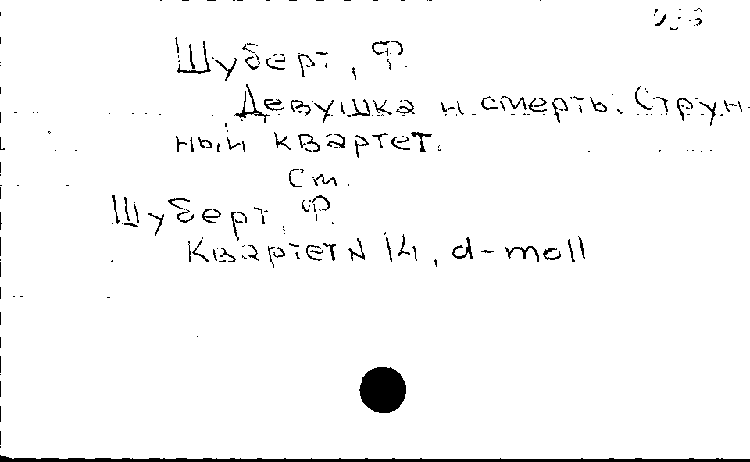 Шуберт, Ф.
Девушка и смерть. Струн-
ный квартет.
Cm.
Шуберт, Ф.
Квартет N 14, d-moll